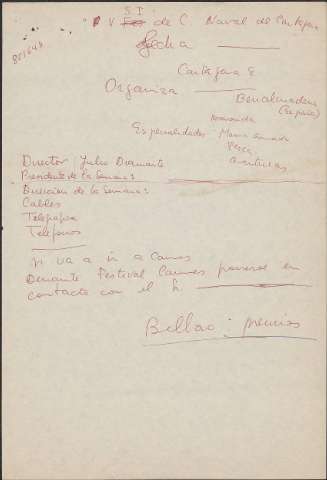 S I
V de C. Naval de Cartagena
fecha
Cartagena
Organiza
Benalmadena
(España)
Especialidades
Director: Julio Diamante
Presidente de la Semana:
Direccion de la Semana:
Cables
Telégrafos
Teléfonos
Si va a ir a Cannes
Durante Festival Cannes ponerse en
contacto con el Sr.
Bilbao: premios